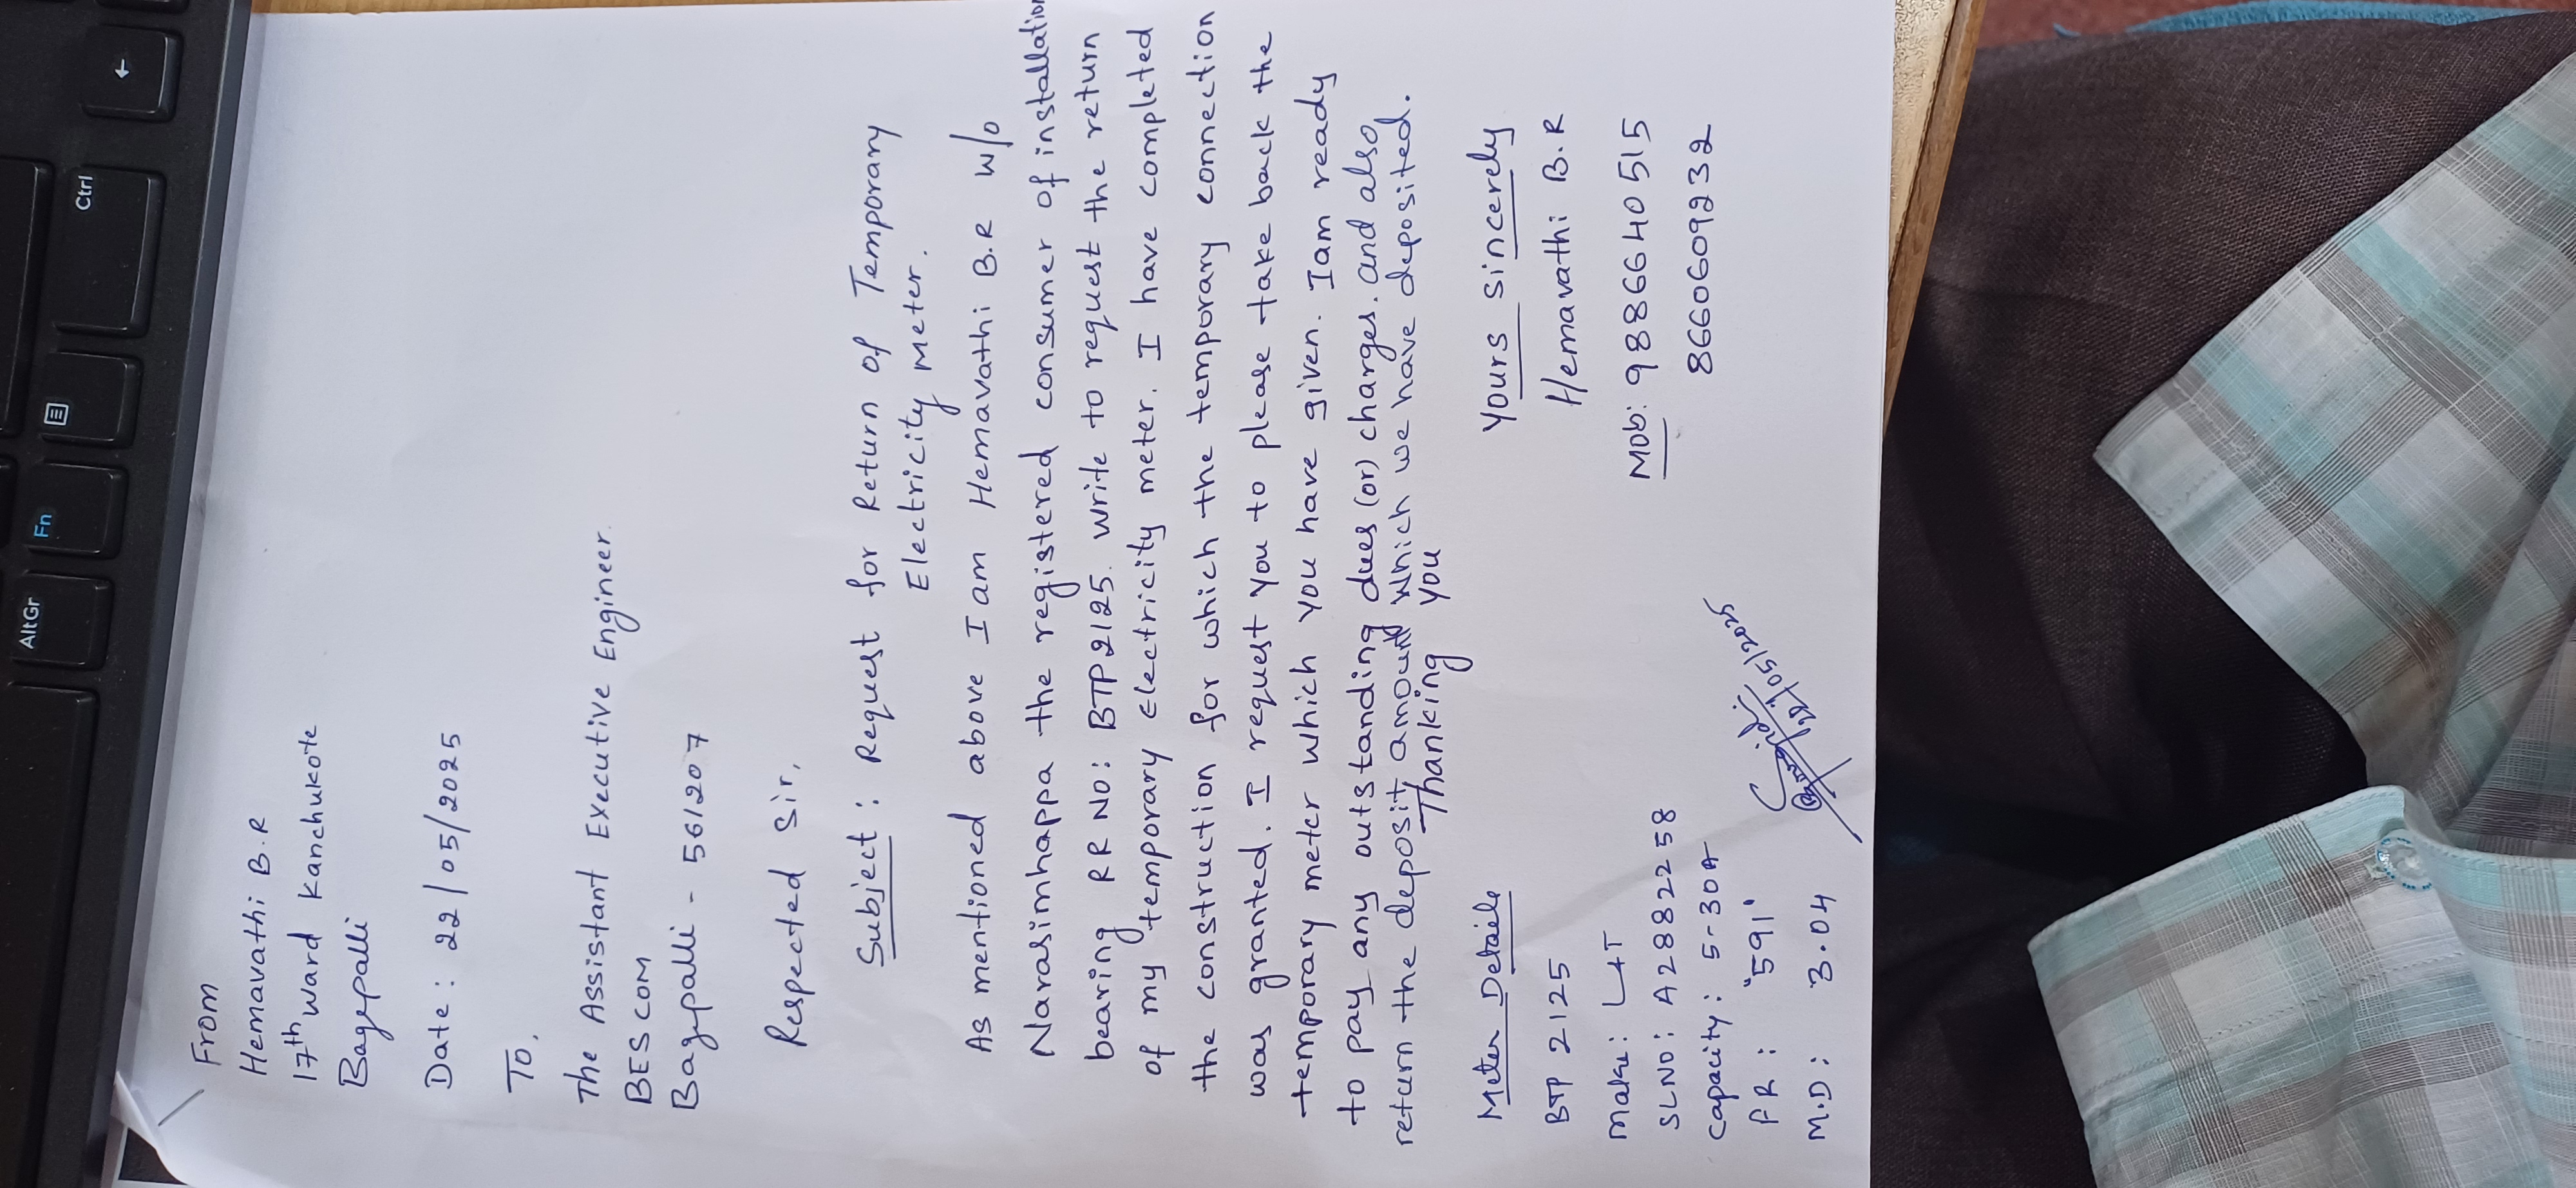 From
Hemavathi B.R
17th Ward Kanchukote
Bagepalli
Date: 22/05/2025
To,
The Assistant Executive Engineer
BESCOM
Bagepalli - 561207
Respected Sir,
Subject: Request for Return of Temporary
Electricity Meter.
As mentioned above I am Hemavathi B.R W/o
Narasimhappa the registered consumer of installation
bearing RR NO: BTP2125. write to request the return
of my temporary electricity meter. I have completed
the construction for which the temporary connection
was granted. I request you to please take back the
temporary meter which you have given. I am ready
to pay any outstanding dues (or) charges. and also
return the deposit amount which we have deposited.
Thanking you
Yours sincerely
Hemavathi B.R
Mob: 9886640515
8660609232
Meter Details
BTP 2125
Make: L&T
SLNO: A2882258
Capacity: 5-30A
FR: '591'
M.D: 3.04
AltGr
Fn
Ctrl